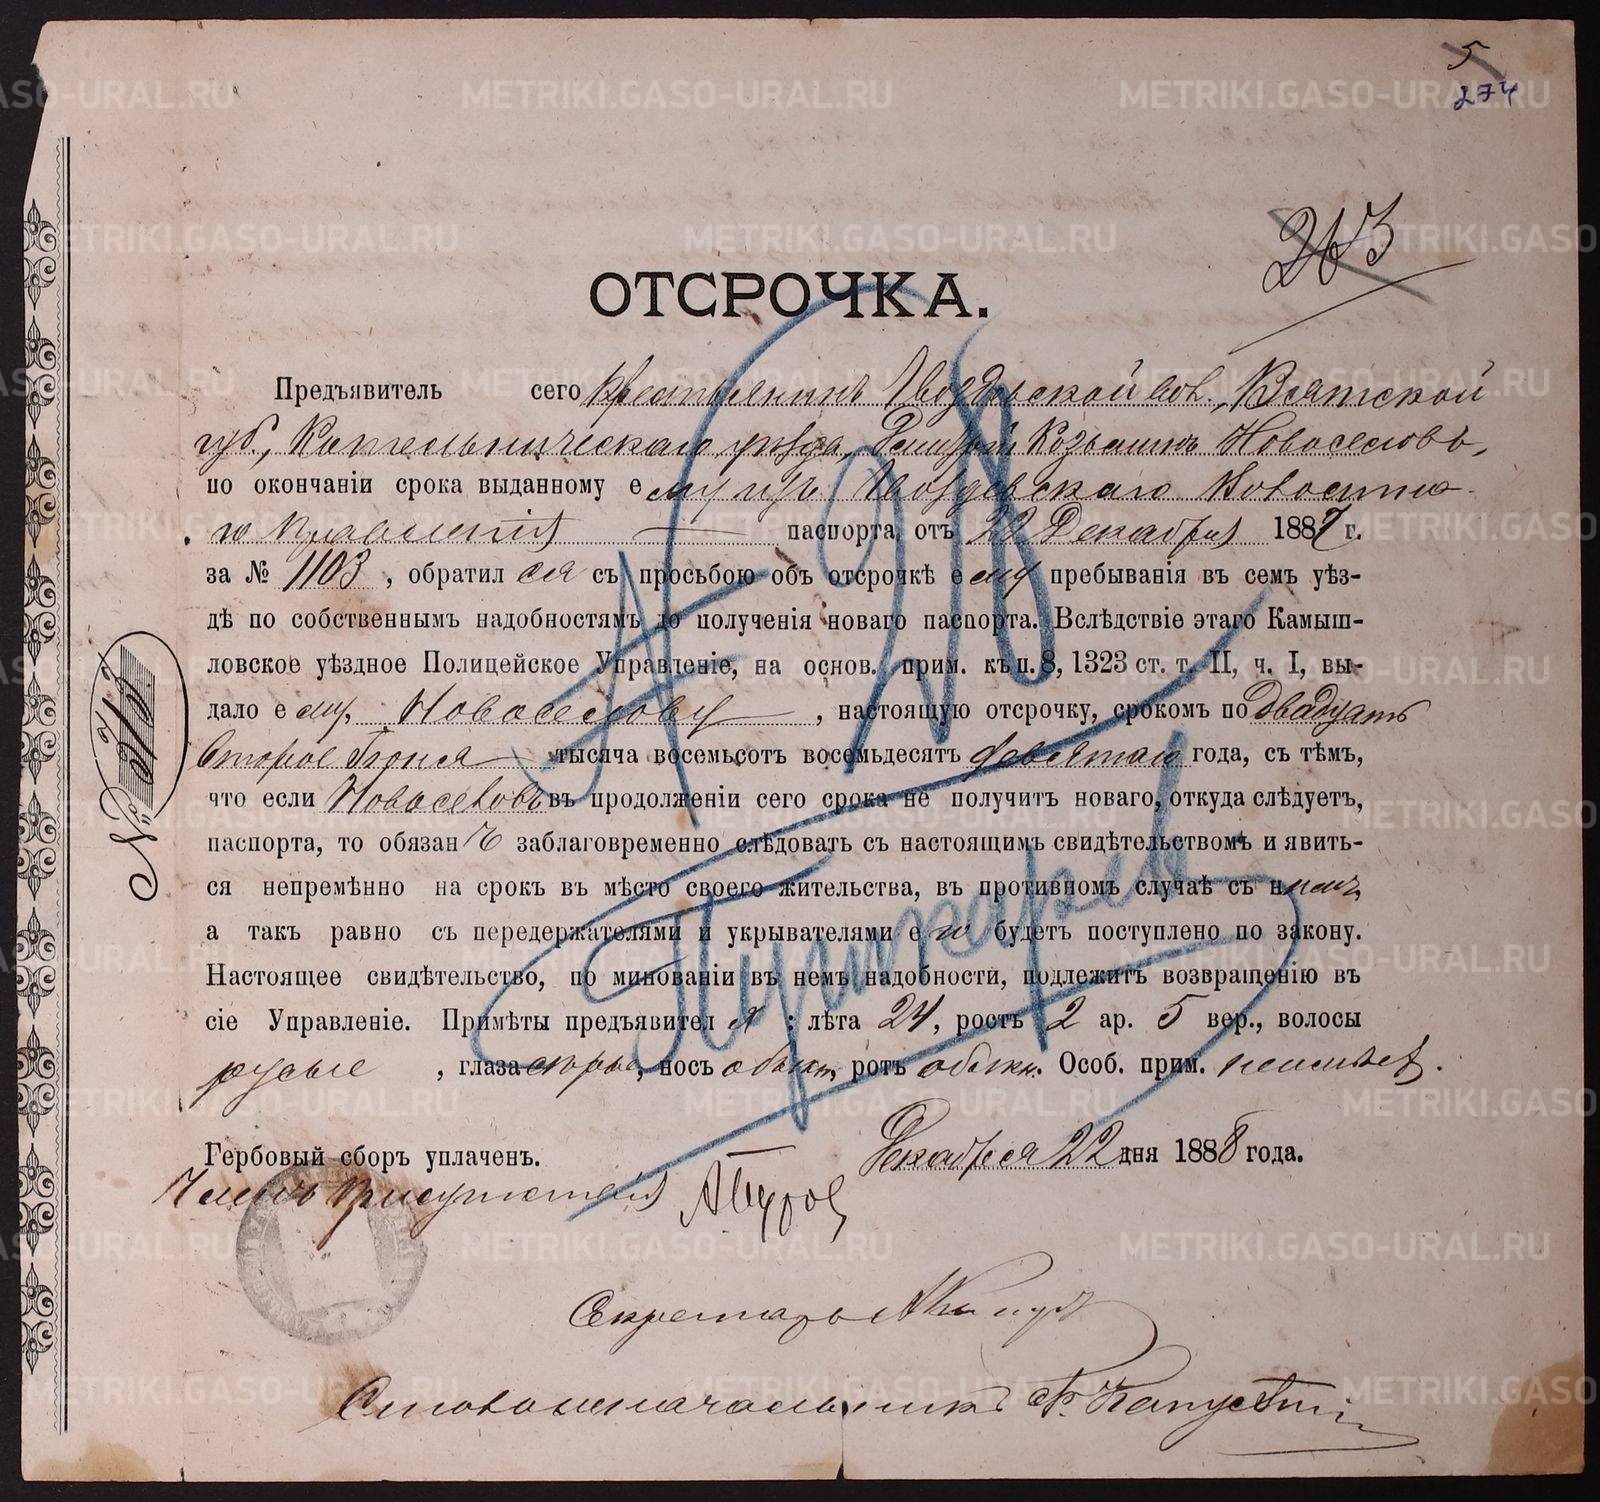 5
274
263
ОТСРОЧКА.
Предъявитель сего крестьянинъ Гвоздевской вол., Вятской
губ., Котельническаго уѣзда, Дмитрій Козьминъ Новоселовъ,
по окончаніи срока выданному ему изъ Гвоздевскаго Волостна-
го Правленія паспорта, отъ 22 Декабря 1887 г.
за № 1103, обратился съ просьбою объ отсрочкѣ ему пребыванія въ семъ уѣз-
дѣ по собственнымъ надобностямъ до полученія новаго паспорта. Вслѣдствіе этаго Камыш-
ловское уѣздное Полицейское Управленіе, на основ. прим. къ п. 8, 1323 ст. т. II, ч. I, вы-
дало ему, Новоселову, настоящую отсрочку, срокомъ по двадцать
второе Іюня тысяча восемьсотъ восемьдесятъ девятаго года, съ тѣмъ,
что если Новоселовъ въ продолженіи сего срока не получитъ новаго, откуда слѣдуетъ,
паспорта, то обязанъ заблаговременно слѣдовать съ настоящимъ свидѣтельствомъ и явить-
ся непремѣнно на срокъ въ мѣсто своего жительства, въ противномъ случаѣ съ нимъ,
а такъ равно съ передержателями и укрывателями его будетъ поступлено по закону.
Настоящее свидѣтельство, по минованіи въ немъ надобности, подлежитъ возвращенію въ
сіе Управленіе. Примѣты предъявителя: лѣта 24, ростъ 2 ар. 5 вер., волосы
русые, глаза сѣрые, носъ обыкн., ротъ обыкн. Особ. прим. неимѣетъ.
Гербовый сборъ уплаченъ. Декабря 22 дня 1888 года.
Членъ Присутствія
Секретарь
Столоначальникъ
№
METRIKI.GASO-URAL.RU